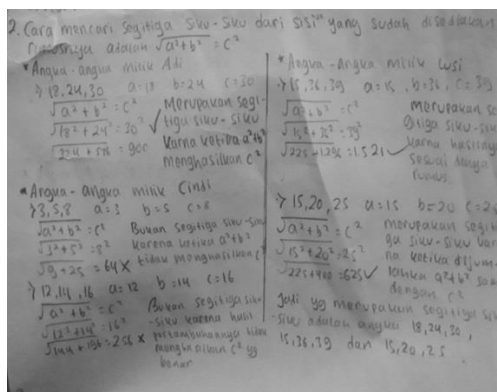 2. Cara mencari segitiga siku-siku dari sisi² yang sudah disediakan
rumusnya adalah √a²+b² = c²
* Angka-angka milik Adi
→ 18,24,30 a=18 b=24 c=30
√a²+b² = c²
√18²+24² = 30² ✓
√324+576 = 900
Merupakan segi-
tiga siku-siku
karna ketika a²+b²
menghasilkan c²
* Angka-angka milik Cindi
→ 3,5,8 a=3 b=5 c=8
√a²+b² = c²
√3²+5² = 8²
√9+25 = 64 ×
Bukan segitiga siku-siku
karena ketika a²+b²
tidak menghasilkan c²
→ 12,14,16 a=12 b=14 c=16
√a²+b² = c²
√12²+14² = 16²
√144+196 = 256 ×
Bukan segitiga siku-
-siku karena hasil
pertambahannya tidak
menghasilkan c² yg
benar
* Angka-angka milik Lusi
→ 15,36,39 a=15, b=36, c=39
√a²+b² = c²
√15²+36² = 39²
√225+1296 = 1.521 ✓
merupakan se
gitiga siku-siku
karna hasilnya
sesuai
rumus.
→ 15,20,25 a=15 b=20
√a²+b² = c²
√15²+20² = 25²
√225+400 = 625 ✓
merupakan segiti
ga siku-siku kar
na ketika dijum-
lahkan a²+b² sama
dengan c²
Jadi yg merupakan segitiga sik
-siku adalah angka 18,24,30,
15,36,39 dan 15,20,25.